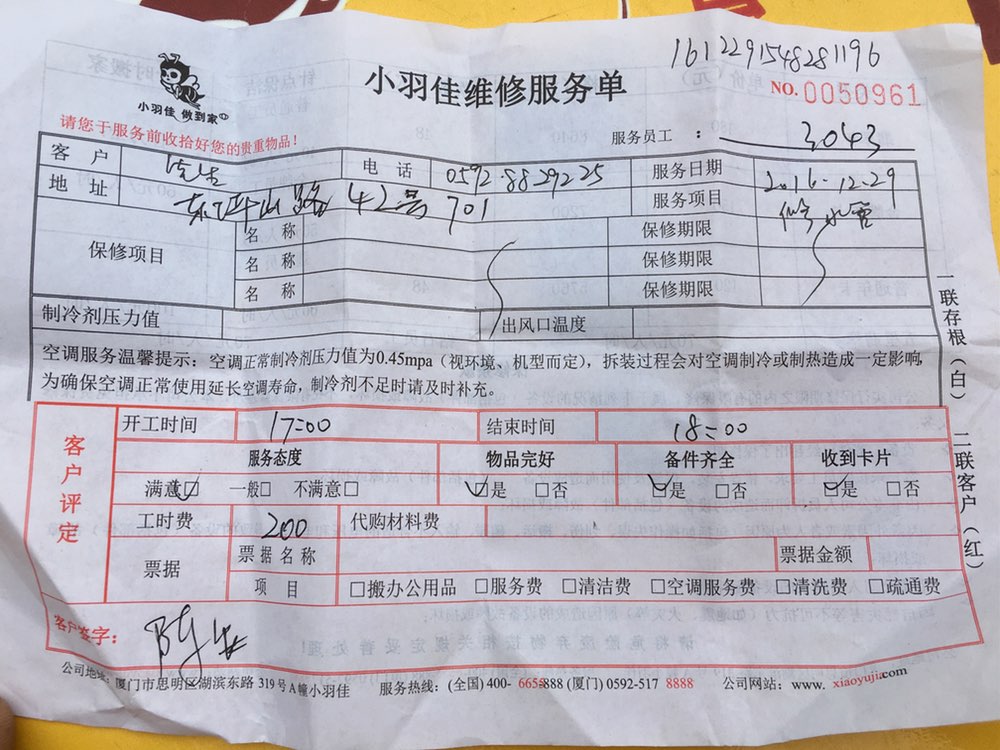 1612291548281196
小羽佳维修服务单
NO. 0050961
小羽佳 做到家
请您于服务前收拾好您的贵重物品！
服务员工 ： 3043
客户 电话 0592-8829225 服务日期 2016-12.29
地址 东坪山路 42号 701 服务项目 修水管
保修项目 名称 保修期限
名称 保修期限
名称 保修期限
制冷剂压力值 出风口温度
空调服务温馨提示：空调正常制冷剂压力值为0.45mpa（视环境、机型而定），拆装过程会对空调制冷或制热造成一定影响，
为确保空调正常使用延长空调寿命，制冷剂不足时请及时补充。
一联存根（白） 二联客户（红）
客户评定
开工时间 17:00 结束时间 18:00
服务态度 物品完好 备件齐全 收到卡片
满意☑ 一般□ 不满意□ ☑是 □否 ☑是 □否 ☑是 □否
工时费 200 代购材料费
票据 票据名称 票据金额
项目 □搬办公用品 □服务费 □清洁费 □空调服务费 □清洗费 □疏通费
客户签字：
公司地址：厦门市思明区湖滨东路 319 号 A 幢小羽佳 服务热线：(全国) 400- 6655-888 (厦门) 0592-517 8888 公司网站：www. xiaoyujia.com